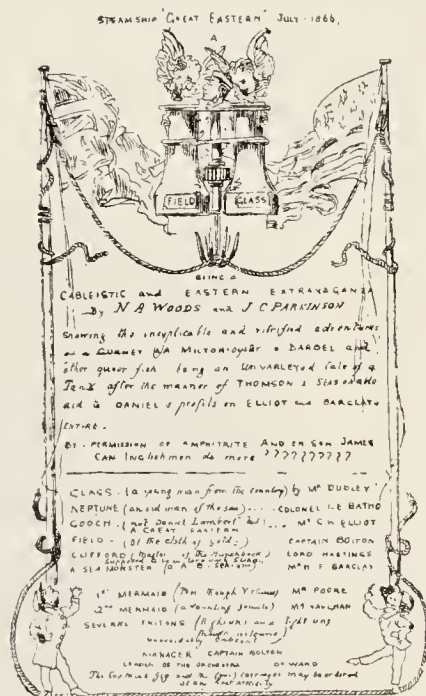 STEAMSHIP "GREAT EASTERN" JULY - 1866,
A
FIELD GLASS
BEING A
CABLEISTIC and EASTERN EXTRAVAGANZA
By N A WOODS and J C PARKINSON
Showing the inexplicable and vitrified adventures
of a GURNEY a MILTON-oyster a BARBEL and
other queer fish being an UNVARLEYED tale of a
Tank after the manner of THOMSON's SEASONABLE
aid to DANIEL's profits on ELLIOT and BARCLAYs
ENTIRE.
BY. PERMISSION OF AMPHITRITE AND ER SON JAMES
CAN Inglishmen do more ??????????
GLASS. (a young man from the country) by Mr DUDLEY
NEPTUNE (an old man of the sea)... COLONEL LE BATHO
GOOCH. (not Daniel Lambert but)... Mr C W ELLIOT
A GREAT EASTERN
FIELD - (Of the cloth of gold.) CAPTAIN BOLTON
CLIFFORD (Master of the) LORD HASTINGS
Supposed to be
A SEA MONSTER Mr H F BARCLAY
1st MERMAID (Tho Rough Yr) Mr POORE
2nd MERMAID (a) Mr
SEVERAL TRITONS and light uns
MANAGER CAPTAIN BOLTON
LEADER OF THE ORCHESTRA Dr WARD
The Captains gig and the carriages may be ordered